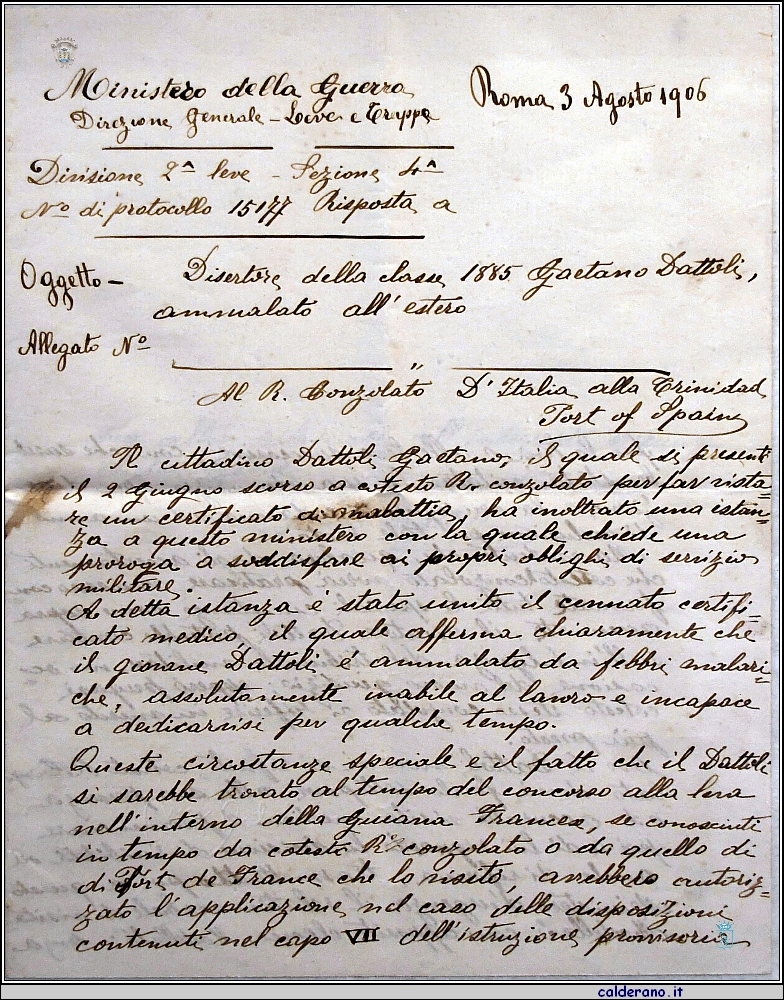 Ministero della Guerra
Roma 3 Agosto 1906
Direzione Generale - Leve e Truppe
Divisione 2ª leve - Sezione 4ª
Nº di protocollo 15177 Risposta a
Oggetto - Disertore della classe 1885 Gaetano Dattoli,
ammalato all'estero
Allegato Nº "
Al R. Conzolato D'Italia alla Trinidad
Port of Spain
Il cittadino Dattoli Gaetano, il quale si presentò
il 2 Giugno scorso a cotesto R. conzolato per far vista=
re un certificato di malattia, ha inoltrato una istan=
za a questo ministero con la quale chiede una
proroga a soddisfare ai propri oblighi di servizio
militare.
A detta istanza é stato unito il cennato certifi=
cato medico, il quale afferma chiaramente che
il giovane Dattoli é ammalato da febbri malari=
che, assolutamente inabile al lavoro e incapace
a dedicarvisi per qualche tempo.
Queste circostanze speciale e il fatto che il Dattoli
si sarebbe trovato al tempo del concorso alla leva
nell'interno della Guiana Francese, se conosciuti
in tempo da cotesto Rº conzolato o da quello di
di Fort de France che lo visitò, avrebbero autoriz=
zato l'applicazione nel caso delle disposizioni
contenuti nel capo VII dell'istruzione provvisoria
calderano.it